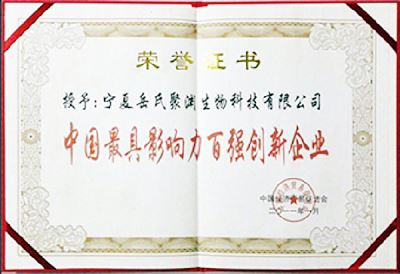 荣誉证书
授予:宁夏岳氏聚渊生物科技有限公司
中国最具影响力百强创新企业
中国经济促进会